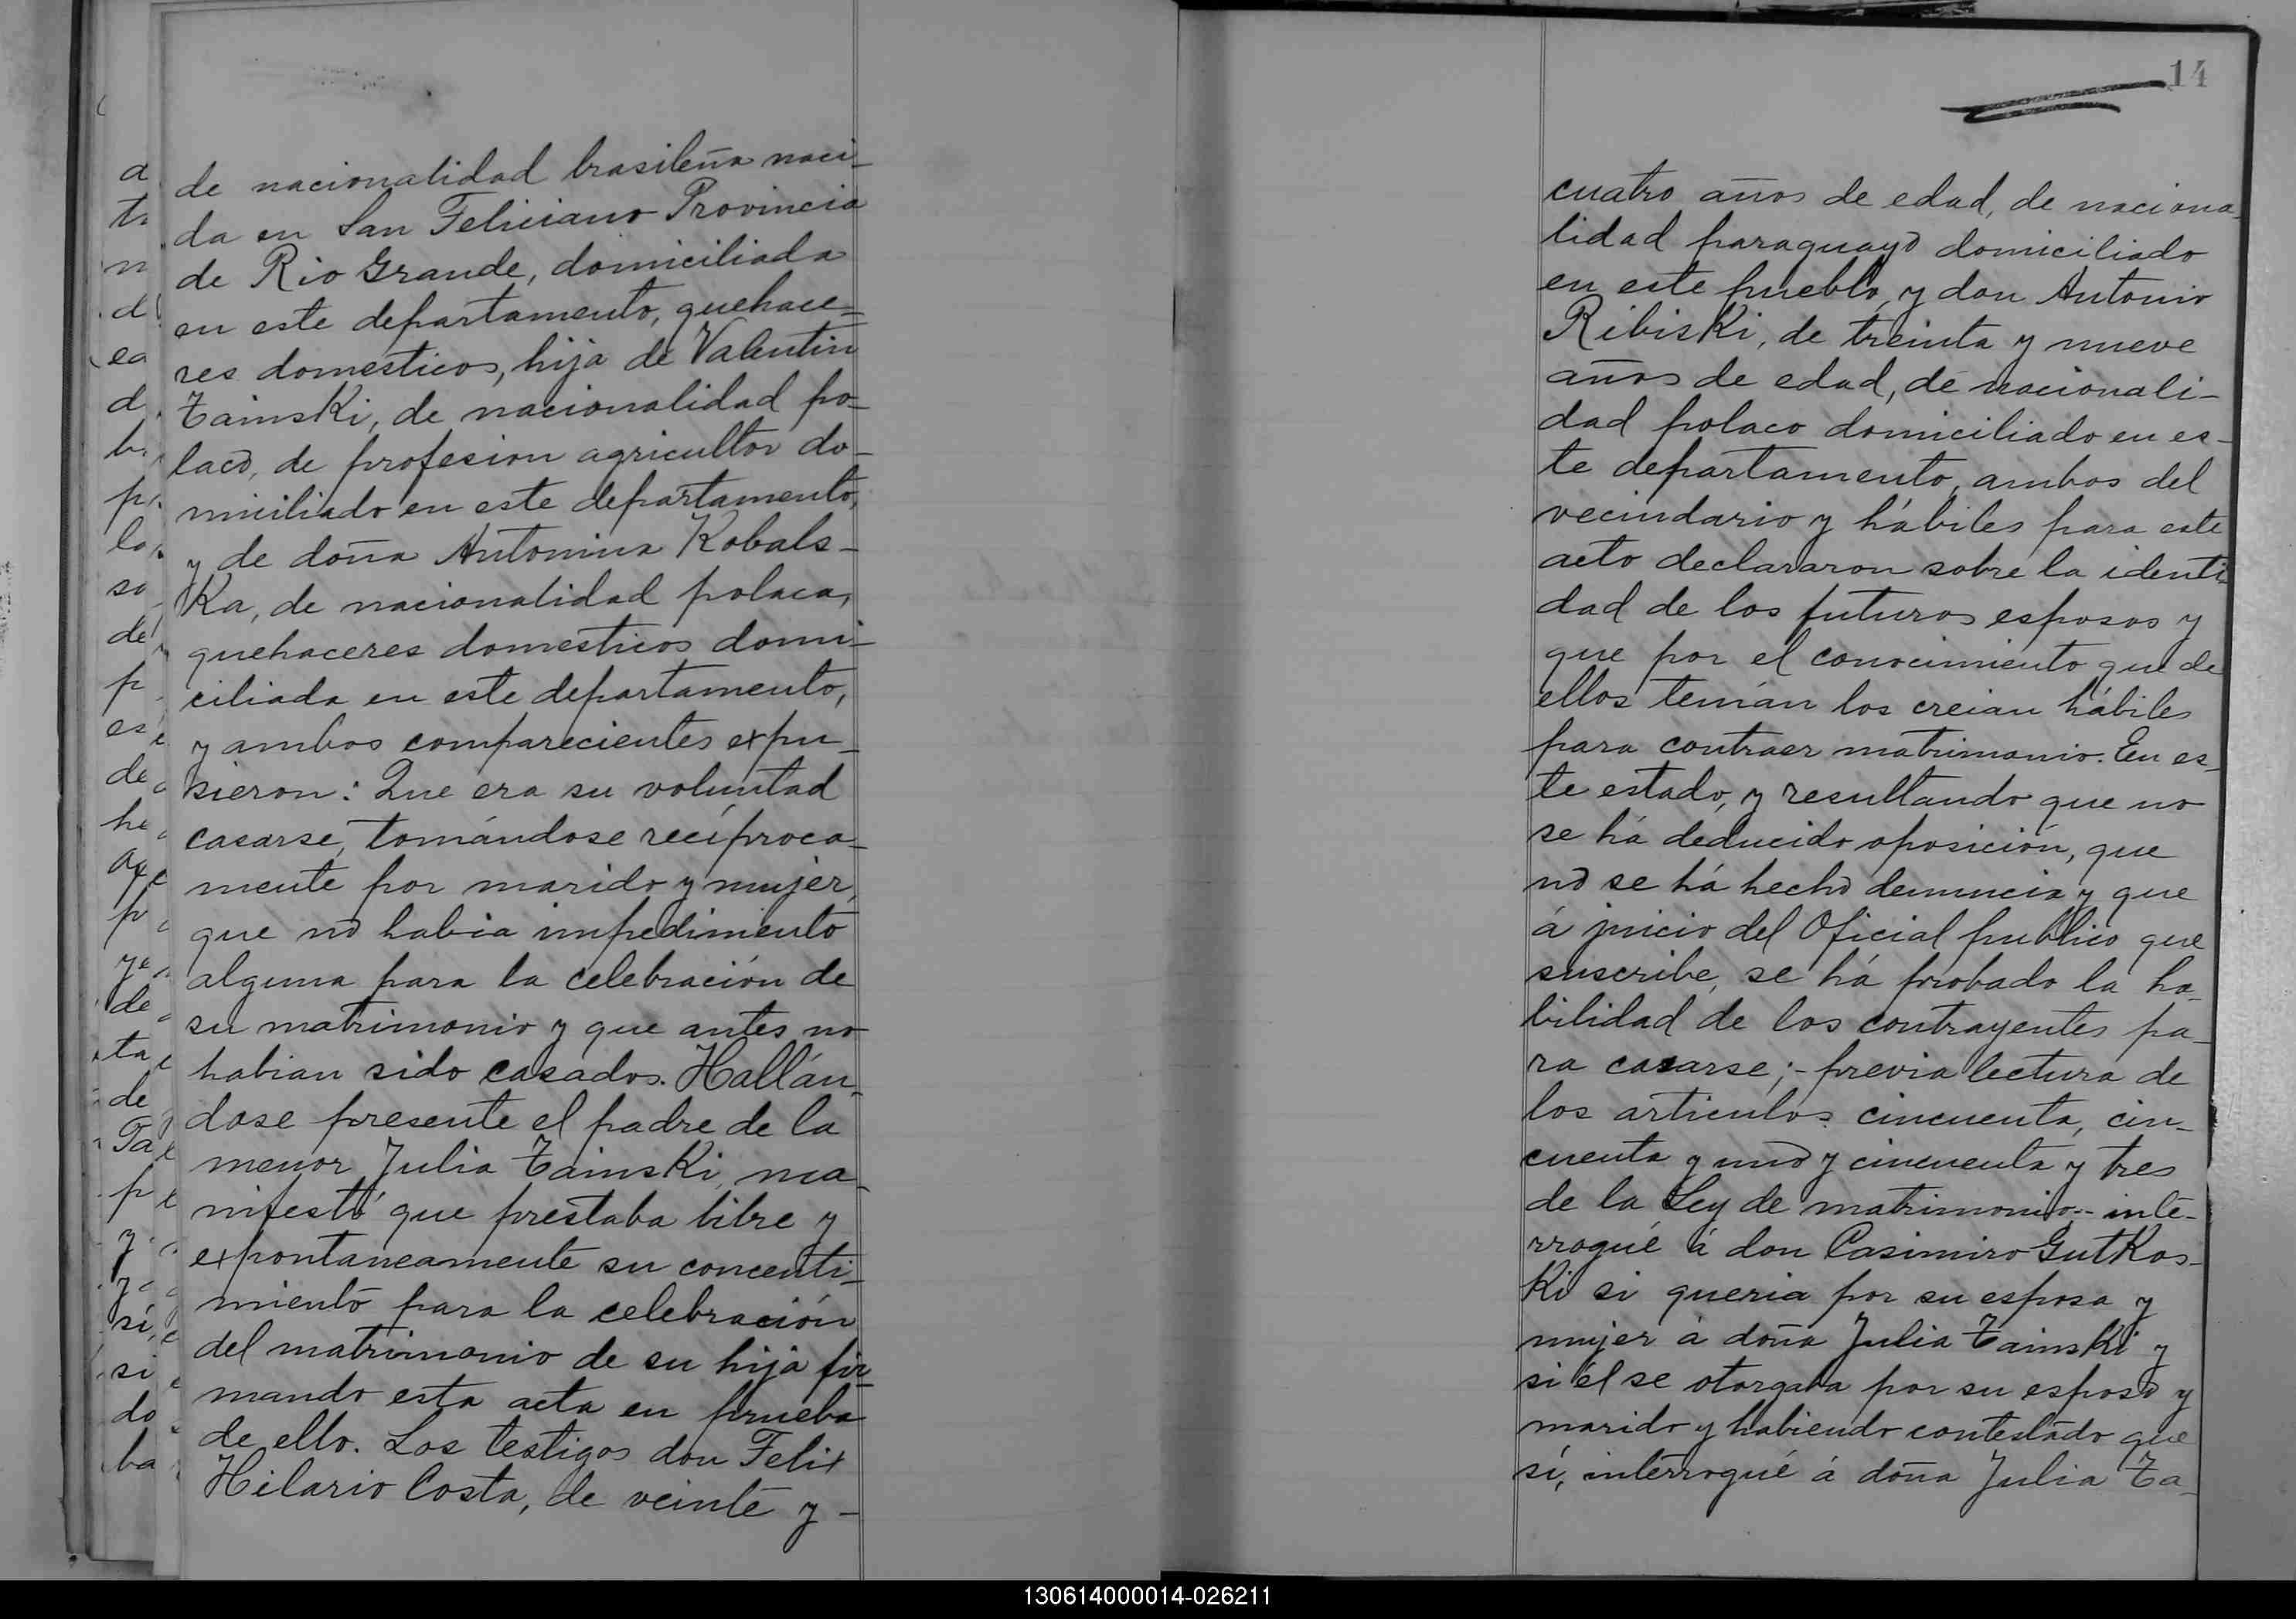 de nacionalidad brasileña naci-
da en San Feliciano Provincia
de Rio Grande, domiciliada
en este departamento, quehace-
res domesticos, hija de Valentin
Tainski, de nacionalidad po-
laco, de profesion agricultor do-
miciliado en este departamento,
y de doña Antonina Kobals-
Ka, de nacionalidad polaca,
quehaceres domesticos domi-
ciliada en este departamento,
y ambos comparecientes expu-
sieron: Que era su voluntad
casarse, tomándose recíproca-
mente por marido y mujer,
que no habia impedimento
alguna para la celebración de
su matrimonio y que antes no
habian sido casados. Hallán-
dose presente el padre de la
menor Julia Tainski, ma-
nifestó que prestaba libre y
expontaneamente su concenti-
miento para la celebración
del matrimonio de su hija fir-
mando esta acta en prueba
de ello. Los testigos don Felix
Hilario Costa, de veinte y -
14
cuatro años de edad, de naciona-
lidad paraguayo domiciliado
en este pueblo, y don Antonio
Ribiski, de treinta y nueve
años de edad, de nacionali-
dad polaco domiciliado en es-
te departamento, ambos del
vecindario y hábiles para este
acto declararon sobre la identi-
dad de los futuros esposos y
que por el conocimiento que de
ellos tenían los creian hábiles
para contraer matrimonio. En es-
te estado, y resultando que no
se há deducido oposición, que
no se há hecho denuncia y que
á juicio del Oficial publico que
suscribe, se há probado la ha-
bilidad de los contrayentes pa-
ra casarse;- previa lectura de
los articulos cincuenta, cin-
cuenta y uno y cincuenta y tres
de la Ley de matrimonio.- inte-
rrogué á don Casimiro GutKos-
Ki si queria por su esposa y
mujer á doña Julia Tainski y
si él se otorgaba por su esposo y
marido y habiendo contestado que
sí, interrogué á doña Julia Ta-
130614000014-026211